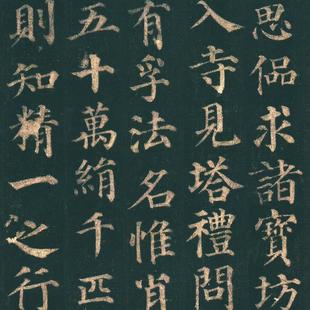 思偘求諸寶坊
入寺見塔禮問
有孚法名惟肖
五十萬絹千匹
則知精一之行